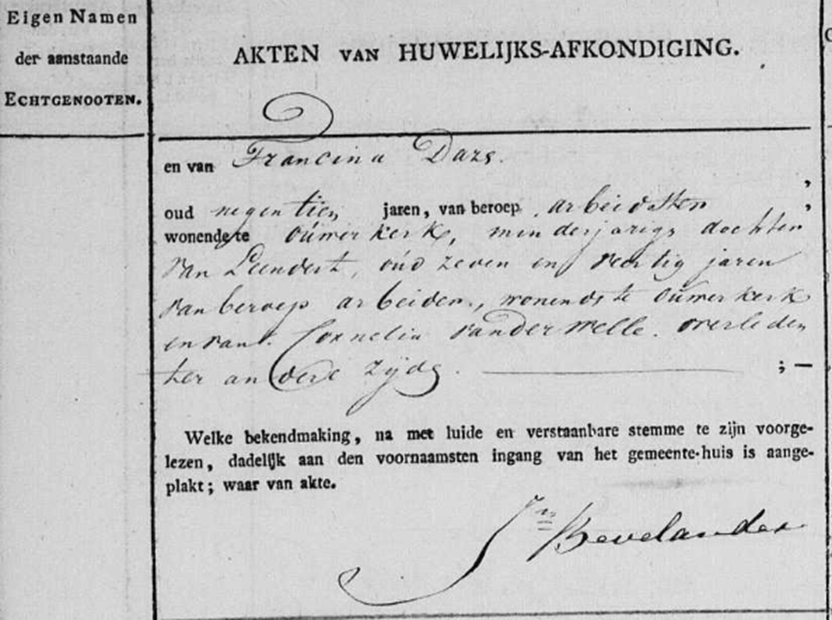 Eigen Namen
der aanstaande
ECHTGENOOTEN.
AKTEN VAN HUWELIJKS-AFKONDIGING.
en van Francina Dars.
oud negentien jaren, van beroep arbeidster,
wonende te Ouwerkerk, minderjarige dochter
van Leendert, oud zeven en veertig jaren
van beroep arbeider, wonende te Ouwerkerk
en van Cornelia van der Welle. overleden
ter andere zijde. ;—
Welke bekendmaking, na met luide en verstaanbare stemme te zijn voorge-
lezen, dadelijk aan den voornaamsten ingang van het gemeente-huis is aange-
plakt; waar van akte.
Jn Bevelander